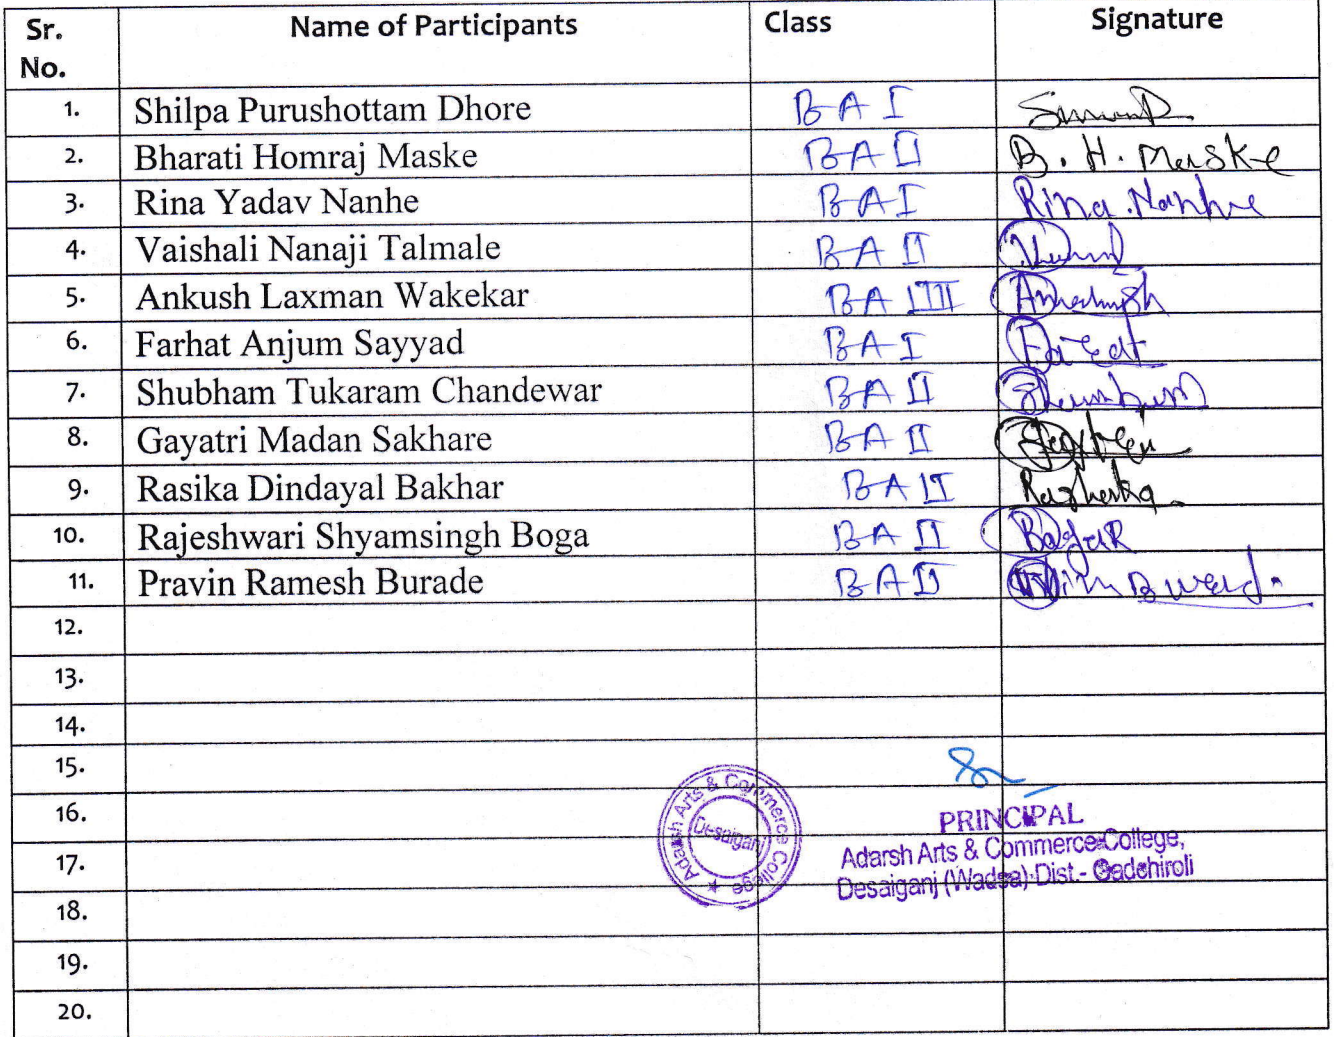 Sr. No. Name of Participants Class Signature
1. Shilpa Purushottam Dhore BA I
2. Bharati Homraj Maske BA II B. H. Maske
3. Rina Yadav Nanhe BA I Rina. Nanhe
4. Vaishali Nanaji Talmale BA II
5. Ankush Laxman Wakekar BA III
6. Farhat Anjum Sayyad BA I
7. Shubham Tukaram Chandewar BA II
8. Gayatri Madan Sakhare BA II
9. Rasika Dindayal Bakhar BA II
10. Rajeshwari Shyamsingh Boga BA II
11. Pravin Ramesh Burade BA II
12.
13.
14.
15.
16.
17.
18.
19.
20.
Adarsh Arts & Commerce College
Desaiganj
PRINCIPAL
Adarsh Arts & Commerce College,
Desaiganj (Wadsa) Dist.- Gadchiroli